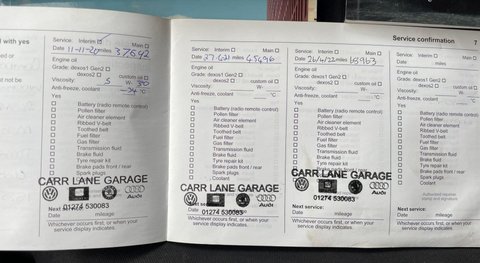 d with yes
ed or
t not be
Service: Interim Main
Date 11-11-20 miles 37642
Engine oil
Grade: dexos1 Gen2
dexos2 custom oil
Viscosity: 5 W- 30
Anti-freeze, coolant -34 °C
Yes
Battery (radio remote control)
Pollen filter
Air cleaner element
Ribbed V-belt
Toothed belt
Fuel filter
Gas filter
Transmission fluid
Brake fluid
Tyre repair kit
Brake pads front / rear
Spark plugs
Coolant
CARR LANE GARAGE
Audi
01274 530083
Next service
Date mileage
Whichever occurs first, or when your
service display indicates.
Service: Interim Main
Date miles 45496
Engine oil
Grade: dexos1 Gen2
dexos2 custom oil
Viscosity: W-
Anti-freeze, coolant °C
Yes
Battery (radio remote control)
Pollen filter
Air cleaner element
Ribbed V-belt
Toothed belt
Fuel filter
Gas filter
Transmission fluid
Brake fluid
Tyre repair kit
Brake pads front / rear
Spark plugs
Coolant
CARR LANE GARAGE
Audi
Next service
01274 530083
Date mileage
Whichever occurs first, or when your
service display indicates.
Service: Interim Main
Date 26/4/22 miles
Engine oil
Grade: dexos1 Gen2
dexos2 custom oil
Viscosity: W-
Anti-freeze, coolant °C
Yes
Battery (radio remote control)
Pollen filter
Air cleaner element
Ribbed V-belt
Toothed belt
Fuel filter
Gas filter
Transmission fluid
Brake fluid
Tyre repair kit
CARR LANE GARAGE
Audi
01274 530083
Next service
Date mileage
Whichever occurs first, or when your
service display indicates.
Service confirmation 7
Service: Interim Main
Date miles
Engine oil
Grade: dexos1 Gen2
dexos2 custom oil
Viscosity: W-
Anti-freeze, coolant °C
Yes
Battery (radio remote control)
Pollen filter
Air cleaner element
Ribbed V-belt
Toothed belt
Fuel filter
Gas filter
Transmission fluid
Brake fluid
Tyre repair kit
Brake pads front / rear
Spark plugs
Coolant
Authorized repairer
stamp and signature
Next service
Date mileage
Whichever occurs first, or when your
service display indicates.